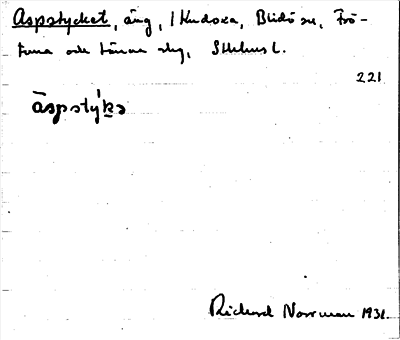 Aspstycket, äng, 1 Kudoxa, Blidö sn, Frö-
tuna och Länna slg, Sthlms l.
221
àspstýḵə
Richard Norrman 1931.